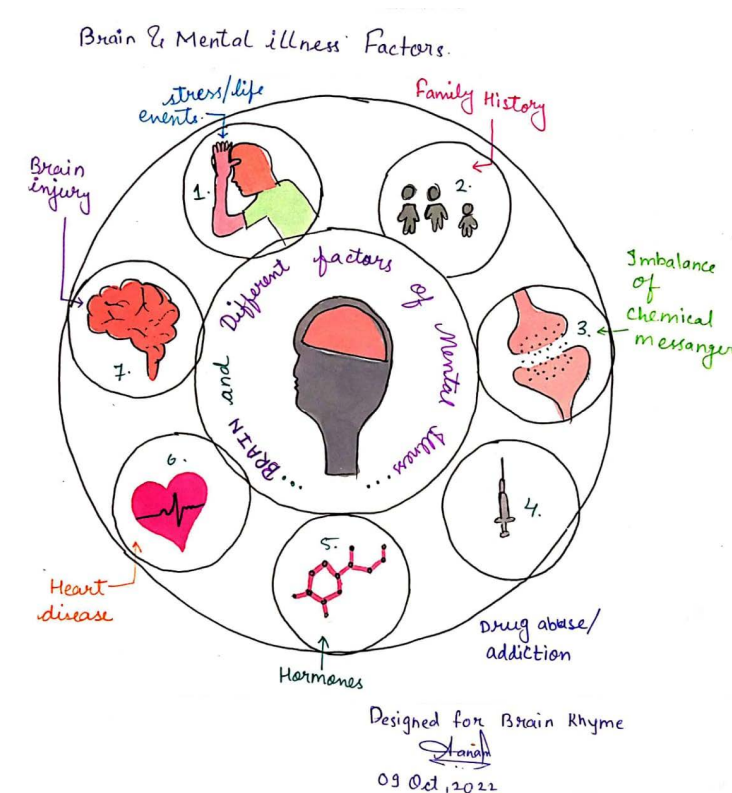 Brain & Mental illness Factors.
stress/life
events.
Family History
Brain
injury
1.
2.
Imbalance
of
chemical
messanger
3.
7.
BRAIN and Different factors of Mental Illness
6.
4.
5.
Heart
disease
Drug abuse/
addiction
Hormones
Designed for Brain Khyme
09 Oct, 2022